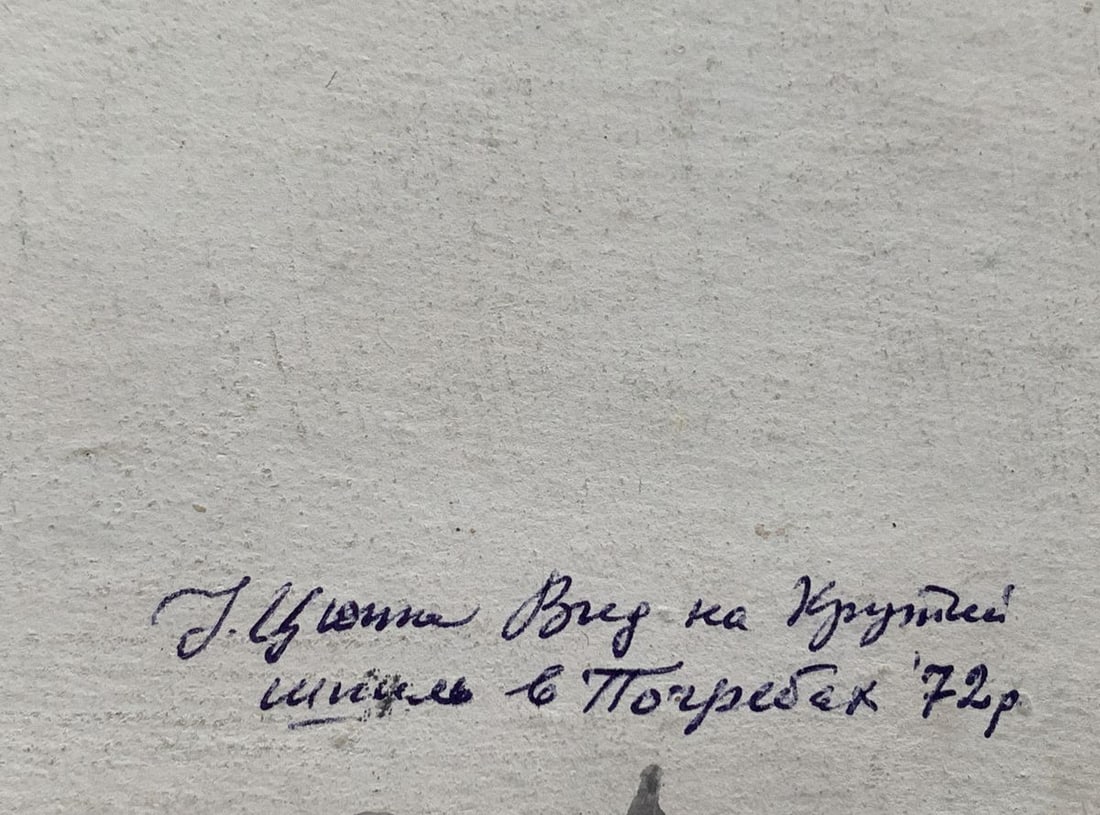 І. Цюпка Вид на Крутий
шпиль в Погребах '72р